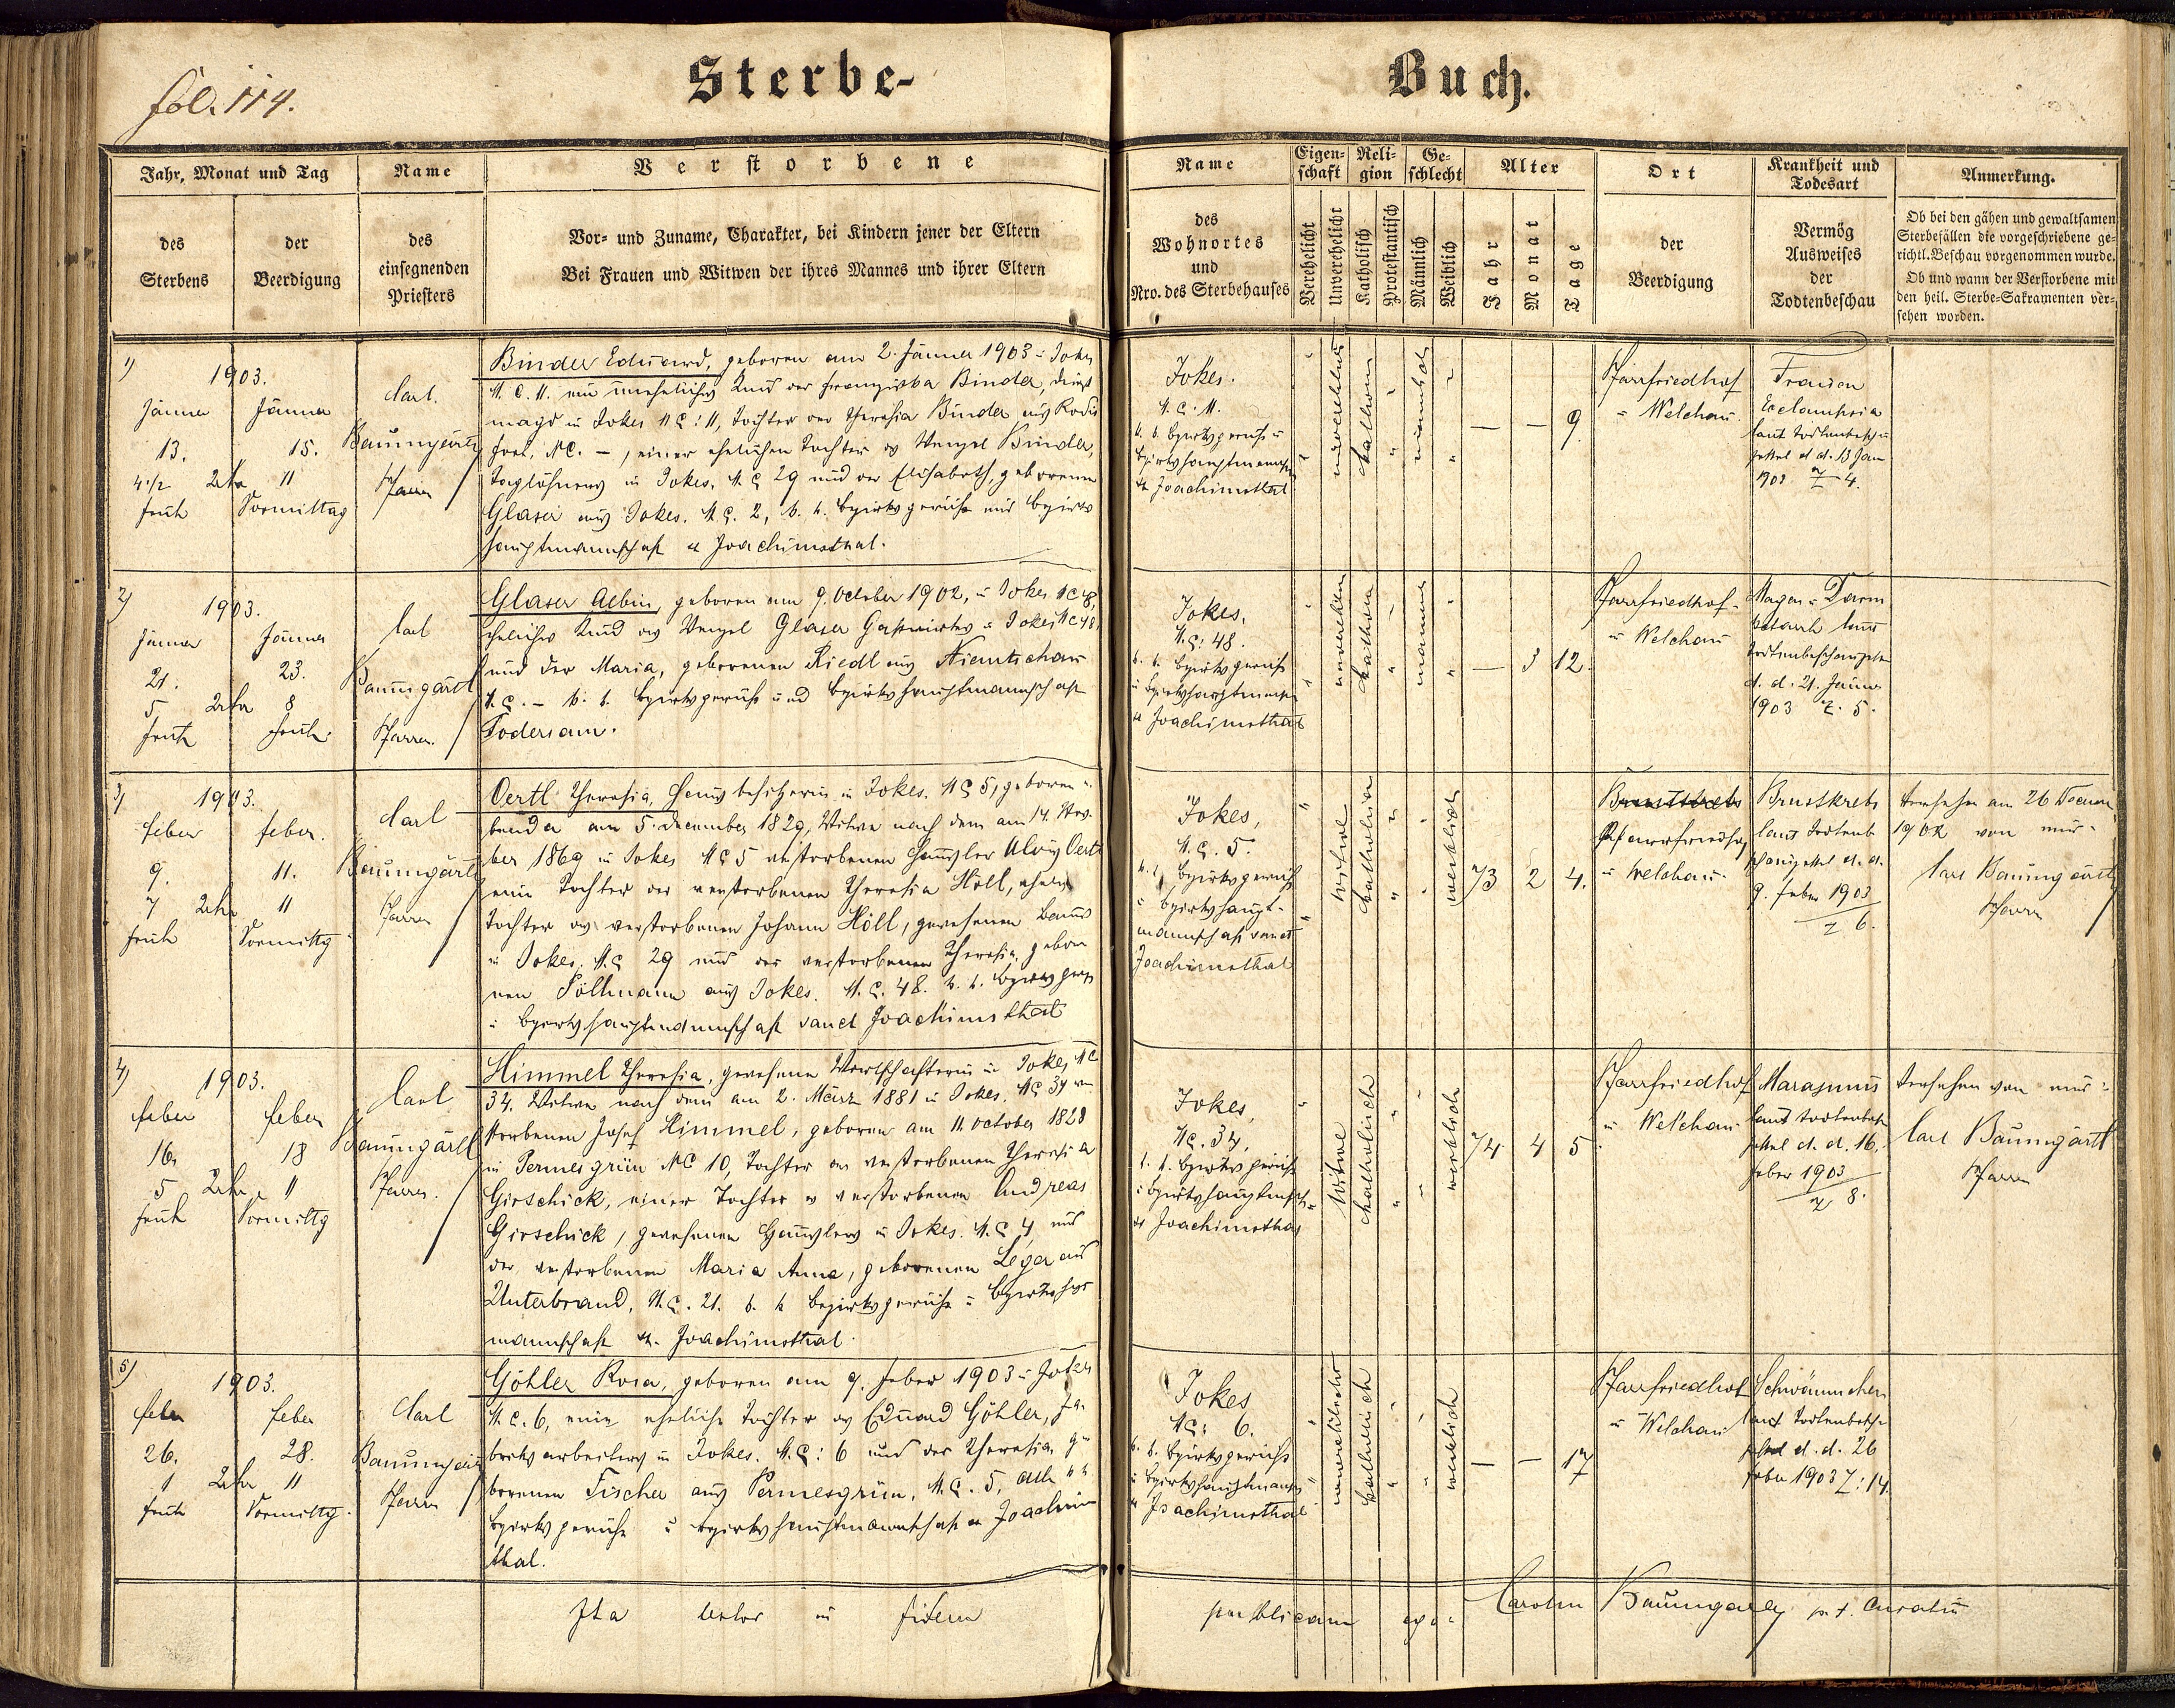 fol. 114.
Sterbe-
Buch.
Jahr, Monat und Tag
des Sterbens
der Beerdigung
Name
des einsegnenden Priesters
Verstorbene
Vor- und Zuname, Charakter, bei Kindern jener der Eltern
Bei Frauen und Witwen der ihres Mannes und ihrer Eltern
Name
des
Wohnortes
und
Nro. des Sterbehauses
Eigenschaft
Verehelicht
Unverehelicht
Religion
Katholisch
Protestantisch
Geschlecht
Männlich
Weiblich
Alter
Jahr
Monat
Tage
Ort
der
Beerdigung
Krankheit und
Todesart
Vermög
Ausweises
der
Todtenbeschau
Anmerkung.
Ob bei den gähen und gewaltsamen
Sterbefällen die vorgeschriebene ge-
richtl. Beschau vorgenommen wurde.
Ob und wann der Verstorbene mit
den heil. Sterbe-Sakramenten ver-
sehen worden.
1)
1903.
Jänner
13.
4 1/2 Uhr
früh
Jänner
15.
11
Vormittag
Carl
Baumgärtl
Pfarrer
Binder Eduard, geboren am 2. Jänner 1903 in Jokes
N.C. 11. ein uneheliches Kind der Franziska Binder, Dienst
magd in Jokes NC: 11, Tochter der Theresia Binder aus
NC. –, einer ehelichen Tochter des Wenzel Binder,
Taglöhners in Jokes, N.C. 29 und der Elisabeth, geborenen
Glaser aus Jokes. N.C. 2, k. k. Bezirksgericht und Bezirks
hauptmannschaft St. Joachimsthal.
Jokes.
N.C. 11.
k. k. Bezirksgericht u
Bezirkshauptmannsch
St. Joachimsthal
– – 9.
Pfarrfriedhof
in Welchau.
Fraisen
Eclampsia
laut Todtenbeschau
zettel d. d. 13 Jän
1903 Z 4.
2)
1903.
Jänner
21.
5 Uhr
früh
Jänner
23.
8
früh.
Carl
Baumgärtl
Pfarrer.
Glaser Albin, geboren am 9. October 1902, in Jokes NC 48,
eheliches Kind des Wenzel Glaser Gastwirths in Jokes NC 48
und der Maria, geborenen Riedl aus Niemtschau
N.C. – k. k. Bezirksgericht und Bezirkshauptmannschaft
Jokes,
N.C: 48.
k. k. Bezirksgericht
u Bezirkshauptmannsch
St Joachimsthal
– 3 12.
Pfarrfriedhof
in Welchau
Magen- Darm
katarrh laut
Todtenbeschauzettel
d. d. 21. Jänner
1903 Z. 5.
3)
1903.
Feber
9.
7 Uhr
früh
Feber.
11.
11
Vormittg
Carl
Baumgärtl
Pfarrer
Oertl Theresia, Hausbesitzerin in Jokes. NC 5, geboren
am 5. December 1829, Witwe nach dem am 14. Nov.
ber 1869 in Jokes NC 5 verstorbenen Häusler Alois Oertl
eine Tochter der verstorbenen Theresia Höll, ehelich
Tochter des verstorbenen Johann Höll, gewesenen Bauers
in Jokes. N.C 29 und der verstorbenen Theresia gebore
nen Söllmann aus Jokes. N.C. 48. k. k. Bezirksgericht
u Bezirkshauptmannschaft sanct Joachimsthal
Jokes,
N.C. 5.
k. k. Bezirksgericht
u Bezirkshaupt-
mannschaft sanct
Joachimsthal
Witwe
katholisch
weiblich
73 2 4.
Brustkrebs
Pfarrfriedhof
in Welchau.
Brustkrebs
laut Todtenbe
schauzettel d. d.
9. Feber 1903
Z 6.
Versehen am 26 Decem
1902 von mir.
Carl Baumgärtl
Pfarrer
4)
1903.
Feber
16.
5 Uhr
früh
Feber
18
11
Vormittg
Carl
Baumgärtl
Pfarrer.
Himmel Theresia, gewesene Wirtschafterin in Jokes NC
34. Witwe nach dem am 2. März 1881 in Jokes. NC 34 ver
storbenen Josef Himmel, geboren am 11 October 1828
in Permesgrün NC 10, Tochter der verstorbenen Theresia
Girschick, einer Tochter des verstorbenen Andreas
Girschick, gewesenen Häuslers in Jokes. N.C 4, und
der verstorbenen Maria Anna, geborenen Leger aus
Unterbrand, N.C. 21. k. k Bezirksgericht u Bezirkshaupt
mannschaft St. Joachimsthal.
Jokes,
NC. 34,
k. k. Bezirksgericht
u Bezirkshauptmsch
St Joachimsthal
Witwe
katholisch
weiblich
74 4 5
Pfarrfriedhof
in Welchau
Marasmus
laut Todtenbesch
zettel d. d. 16.
Feber 1903
Z 8.
Versehen von mir:
Carl Baumgärtl
Pfarrer
5)
1903.
Feber
26.
1 Uhr
früh
Feber
28.
11
Vormittg.
Carl
Baumgärtl
Pfarrer
Göhler Rosa, geboren am 9. Feber 1903 in Jokes
N.C. 6, eine eheliche Tochter des Eduard Göhler, Fa-
briksarbeiters in Jokes. N.C: 6 und der Theresia ge
borenen Fischer aus Permesgrün, N.C. 5, alle k k
Bezirksgericht u Bezirkshauptmannschaft St Joachims
thal.
Jokes
NC: 6.
k. k. Bezirksgericht
u Bezirkshauptmannsch
St Joachimsthal
unverehelicht
katholisch
weiblich
– – 17
Pfarrfriedhof
in Welchau
Schwämmchen
laut Todtenbesch
zettel d. d. 26
Feber 1903 Z: 14.
Ita testor in fidem
publicam ego Carolus Baumgärtl p. t. Curatus